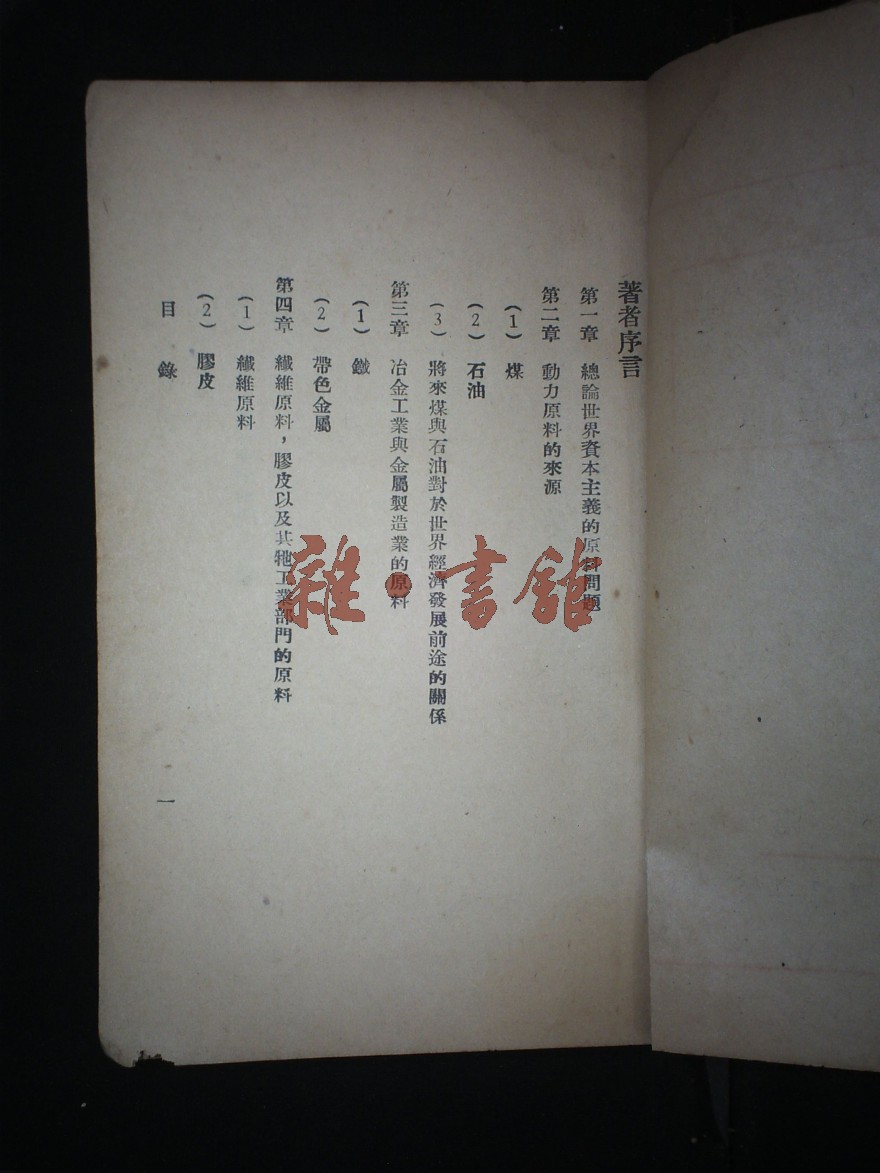 著者序言
第一章 總論世界資本主義的原料問題
第二章 動力原料的來源
(1) 煤
(2) 石油
(3) 將來煤與石油對於世界經濟發展前途的關係
第三章 冶金工業與金屬製造業的原料
(1) 鐵
(2) 帶色金屬
第四章 纎維原料，膠皮以及其牠工業部門的原料
(1) 纎維原料
(2) 膠皮
目錄 一
雜·書館